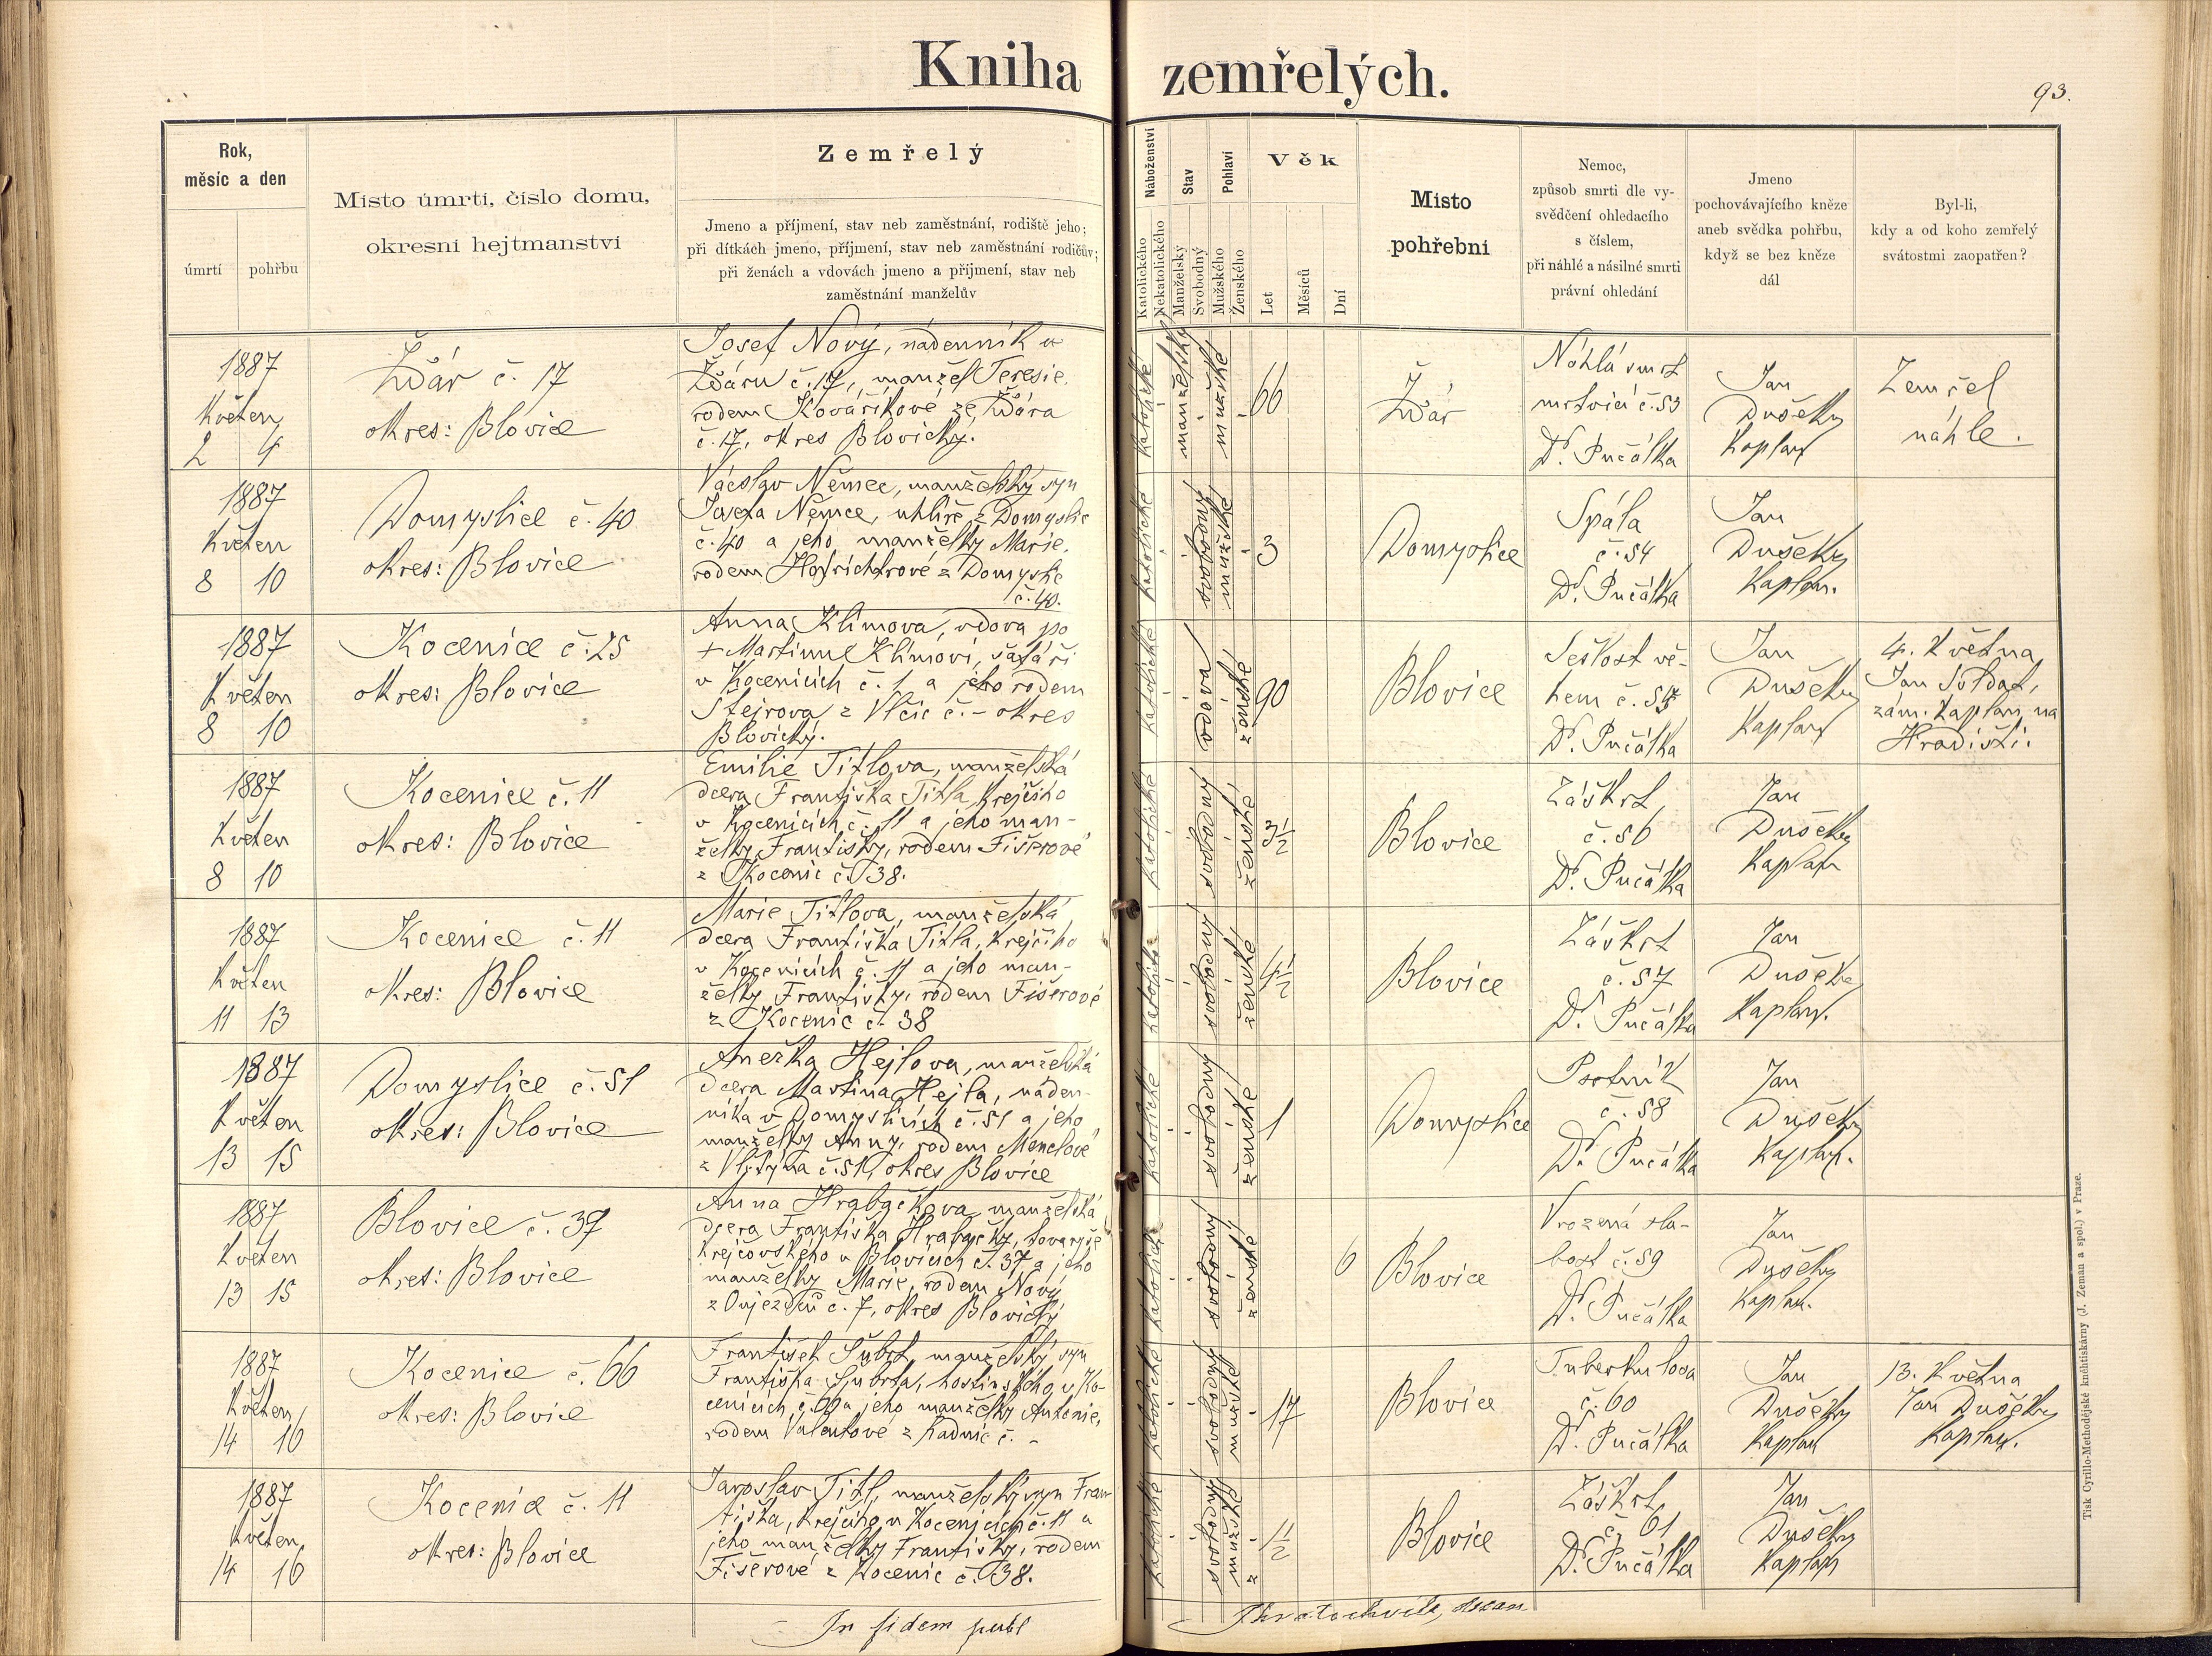 Kniha zemřelých.
93.
Rok,
měsíc a den
úmrtí
pohřbu
Místo úmrtí, číslo domu,
okresní hejtmanství
Zemřelý
Jmeno a příjmení, stav neb zaměstnání, rodiště jeho;
při dítkách jmeno, příjmení, stav neb zaměstnání rodičův;
při ženách a vdovách jmeno a příjmení, stav neb
zaměstnání manželův
Náboženství
Katolického
Nekatolického
Stav
Manželský
Svobodný
Pohlaví
Mužského
Ženského
Věk
Let
Měsíců
Dní
Místo
pohřební
Nemoc,
způsob smrti dle vy-
svědčení ohledacího
s číslem,
při náhlé a násilné smrti
právní ohledání
Jmeno
pochovávajícího kněze
aneb svědka pohřbu,
když se bez kněze
dál
Byl-li,
kdy a od koho zemřelý
svátostmi zaopatřen?
1887
Květen
2 4
Žďár č. 17
okres: Blovice
Josef Nový, nádenník v
Žďáru č. 17, manžel Teresie,
rodem Kovaříkové ze Žďára
č. 17, okres Blovický.
katolické
manželský
mužské
66
Žďár
Náhlá smrt
mrtvicí č. 53
Dr. Pučálka
Jan
Dušek
kaplan
Zemřel
náhle.
1887
Květen
8 10
Domyslice č. 40
okres: Blovice
Václav Němec, manželský syn
Josefa Němce, uhlíře z Domyslic
č. 40 a jeho manželky Marie,
rodem Hofrichtrové z Domyslic
č. 40.
katolické
svobodný
mužské
3
Domyslice
Spála
č. 54
Dr. Pučálka
Jan
Dušek
kaplan.
1887
Květen
8 10
Kocenice č. 25
okres: Blovice
Anna Klímova, vdova po
+ Martinu Klímovi, šafáři
v Kocenicích č. 1 a jeho rodem
Štejrova z Vlčic č. – okres
Blovický.
katolické
vdova
ženské
90
Blovice
Sešlost vě-
kem č. 55
Dr. Pučálka
Jan
Dušek
kaplan
4. Května
Jan Soldat,
zám. kaplan na
Hradišti.
1887
Květen
8 10
Kocenice č. 11
okres: Blovice
Emilie Titlova, manželská
dcera Františka Titla, krejčího
v Kocenicích č. 11 a jeho man-
želky Františky, rodem Fišerové
z Kocenic č. 38.
katolické
svobodný
ženské
3½
Blovice
Záškrt
č. 56
Dr. Pučálka
Jan
Dušek
kaplan
1887
Květen
11 13
Kocenice č. 11
okres: Blovice
Marie Titlova, manželská
dcera Františka Titla, krejčího
v Kocenicích č. 11 a jeho man-
želky Františky, rodem Fišerové
z Kocenic č. 38
katolické
svobodný
ženské
4½
Blovice
Záškrt
č. 57
Dr. Pučálka
Jan
Dušek
kaplan.
1887
Květen
13 15
Domyslice č. 51
okres: Blovice
Anežka Hejlova, manželská
dcera Martina Hejla, náden-
níka v Domyslicích č. 51 a jeho
manželky Anny, rodem Menclové
č. 51, okres Blovice
katolické
svobodný
ženské
1
Domyslice
Psotník
č. 58
Dr. Pučálka
Jan
Dušek
kaplan.
1887
Květen
13 15
Blovice č. 37
okres: Blovice
Anna Hrabačkova, manželská
dcera Františka Hrabačky, tovaryše
krejčovského v Blovicích č. 37 a jeho
manželky Marie, rodem Nový
z Oujezdů č. 7, okres Blovický
katolické
svobodný
ženské
6
Blovice
Vrozená sla-
bost č. 59
Dr. Pučálka
Jan
Dušek
kaplan.
1887
Květen
14 16
Kocenice č. 66
okres: Blovice
František Šubrt, manželský syn
Františka Šubrta, hostinského v Ko-
cenicích č. 66 a jeho manželky Antonie,
rodem Valentové z Radnic č. –
katolické
svobodný
mužské
17
Blovice
Tuberkulosa
č. 60
Dr. Pučálka
Jan
Dušek
kaplan
13. Května
Jan Dušek
kaplan.
1887
Květen
14 16
Kocenice č. 11
okres: Blovice
Jaroslav Titl, manželský syn Fran
tiška, krejčího v Kocenicích č. 11 a
jeho manželky Františky, rodem
Fišerové z Kocenic č. 38.
katolické
svobodný
mužské
1½
Blovice
Záškrt
č. 61
Dr. Pučálka
Jan
Dušek
kaplan
In fidem publ
Tisk Cyrillo-Methodějské knihtiskárny (J. Zeman a spol.) v Praze.